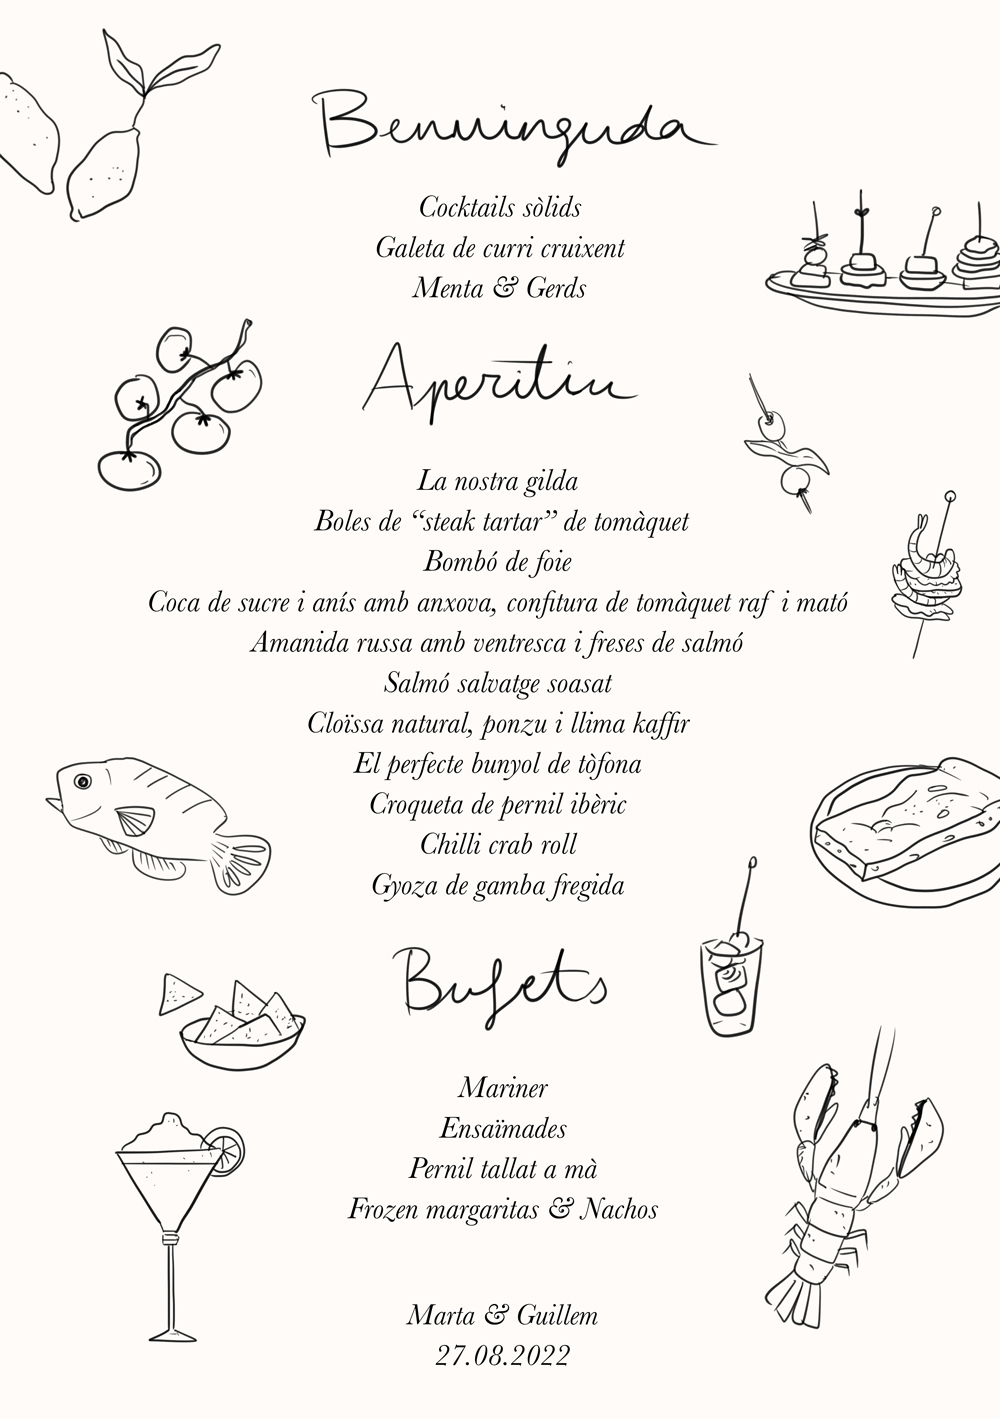 Benvinguda
Cocktails sòlids
Galeta de curri cruixent
Menta & Gerds
Aperitiu
La nostra gilda
Boles de “steak tartar” de tomàquet
Bombó de foie
Coca de sucre i anís amb anxova, confitura de tomàquet raf i mató
Amanida russa amb ventresca i freses de salmó
Salmó salvatge soasat
Cloïssa natural, ponzu i llima kaffir
El perfecte bunyol de tòfona
Croqueta de pernil ibèric
Chilli crab roll
Gyoza de gamba fregida
Bufets
Mariner
Ensaïmades
Pernil tallat a mà
Frozen margaritas & Nachos
Marta & Guillem
27.08.2022